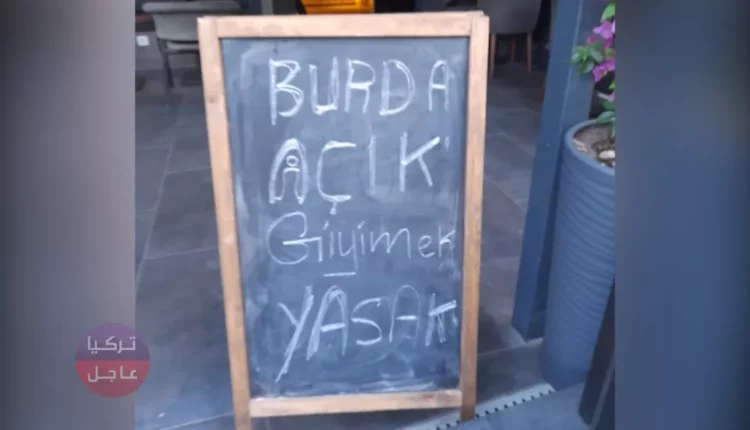 BURDA
AÇIK
Giyimek
YASAK
تركيا
عاجل